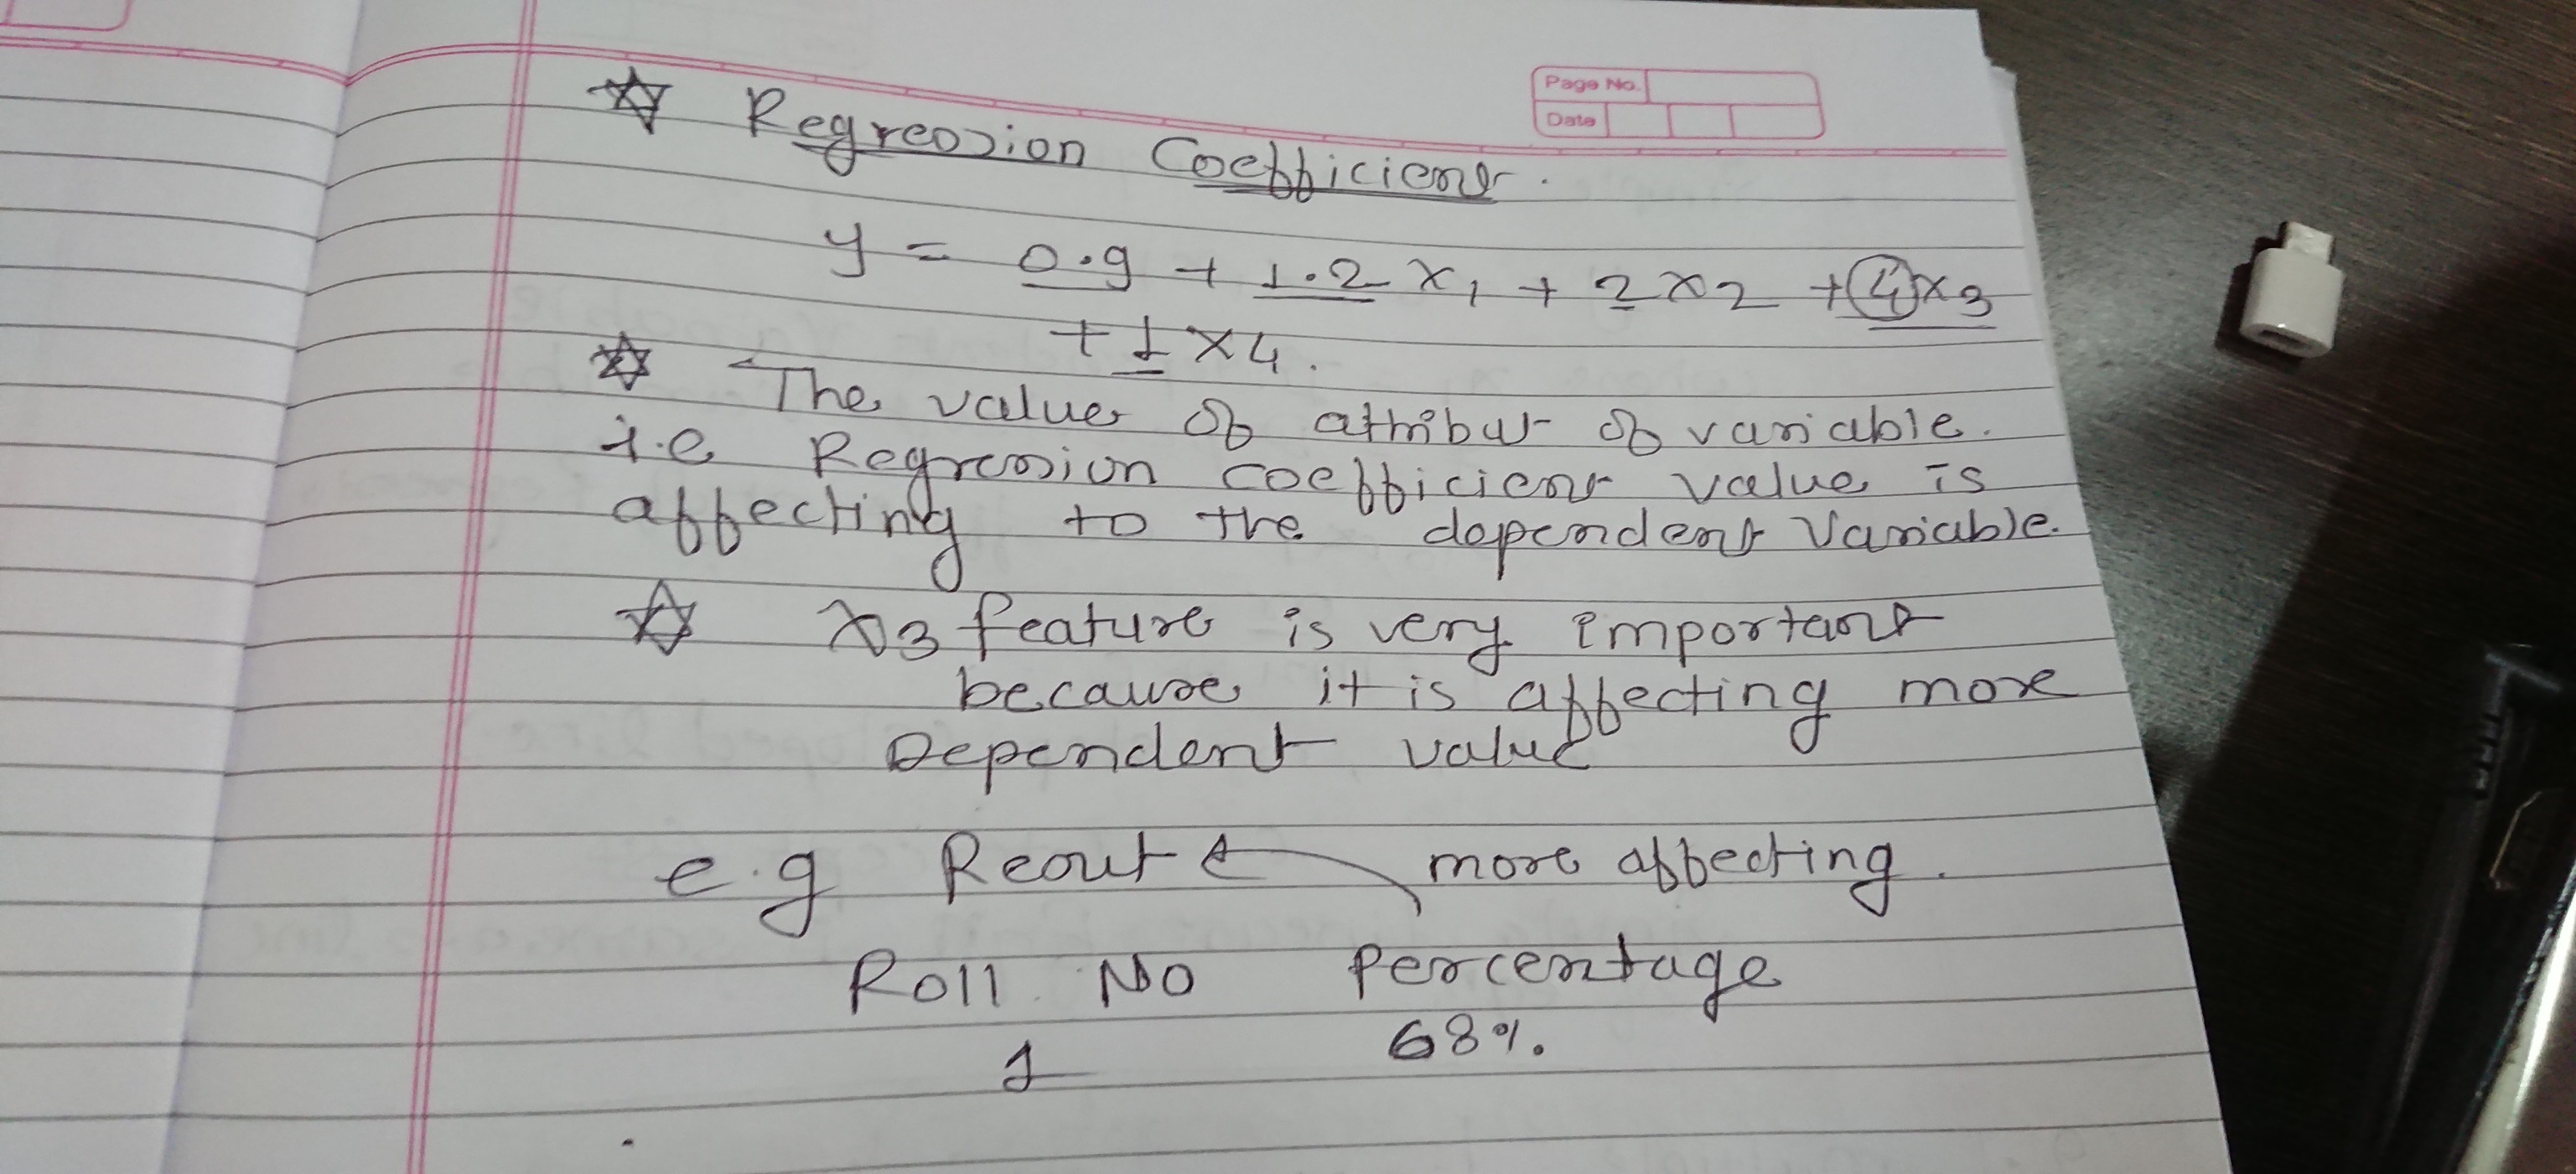 Page No.
Date
☆ Regression Coefficient.
y = 0.9 + 1.2 x1 + 2 x2 + 4 x3
+ 1 x4.
☆ The value of attribut of variable.
i.e Regression coefficient value is
affecting to the dependent variable.
☆ x3 feature is very important
because it is affecting more
Dependent value
e.g Result more affecting.
Roll No Percentage
1 68%.